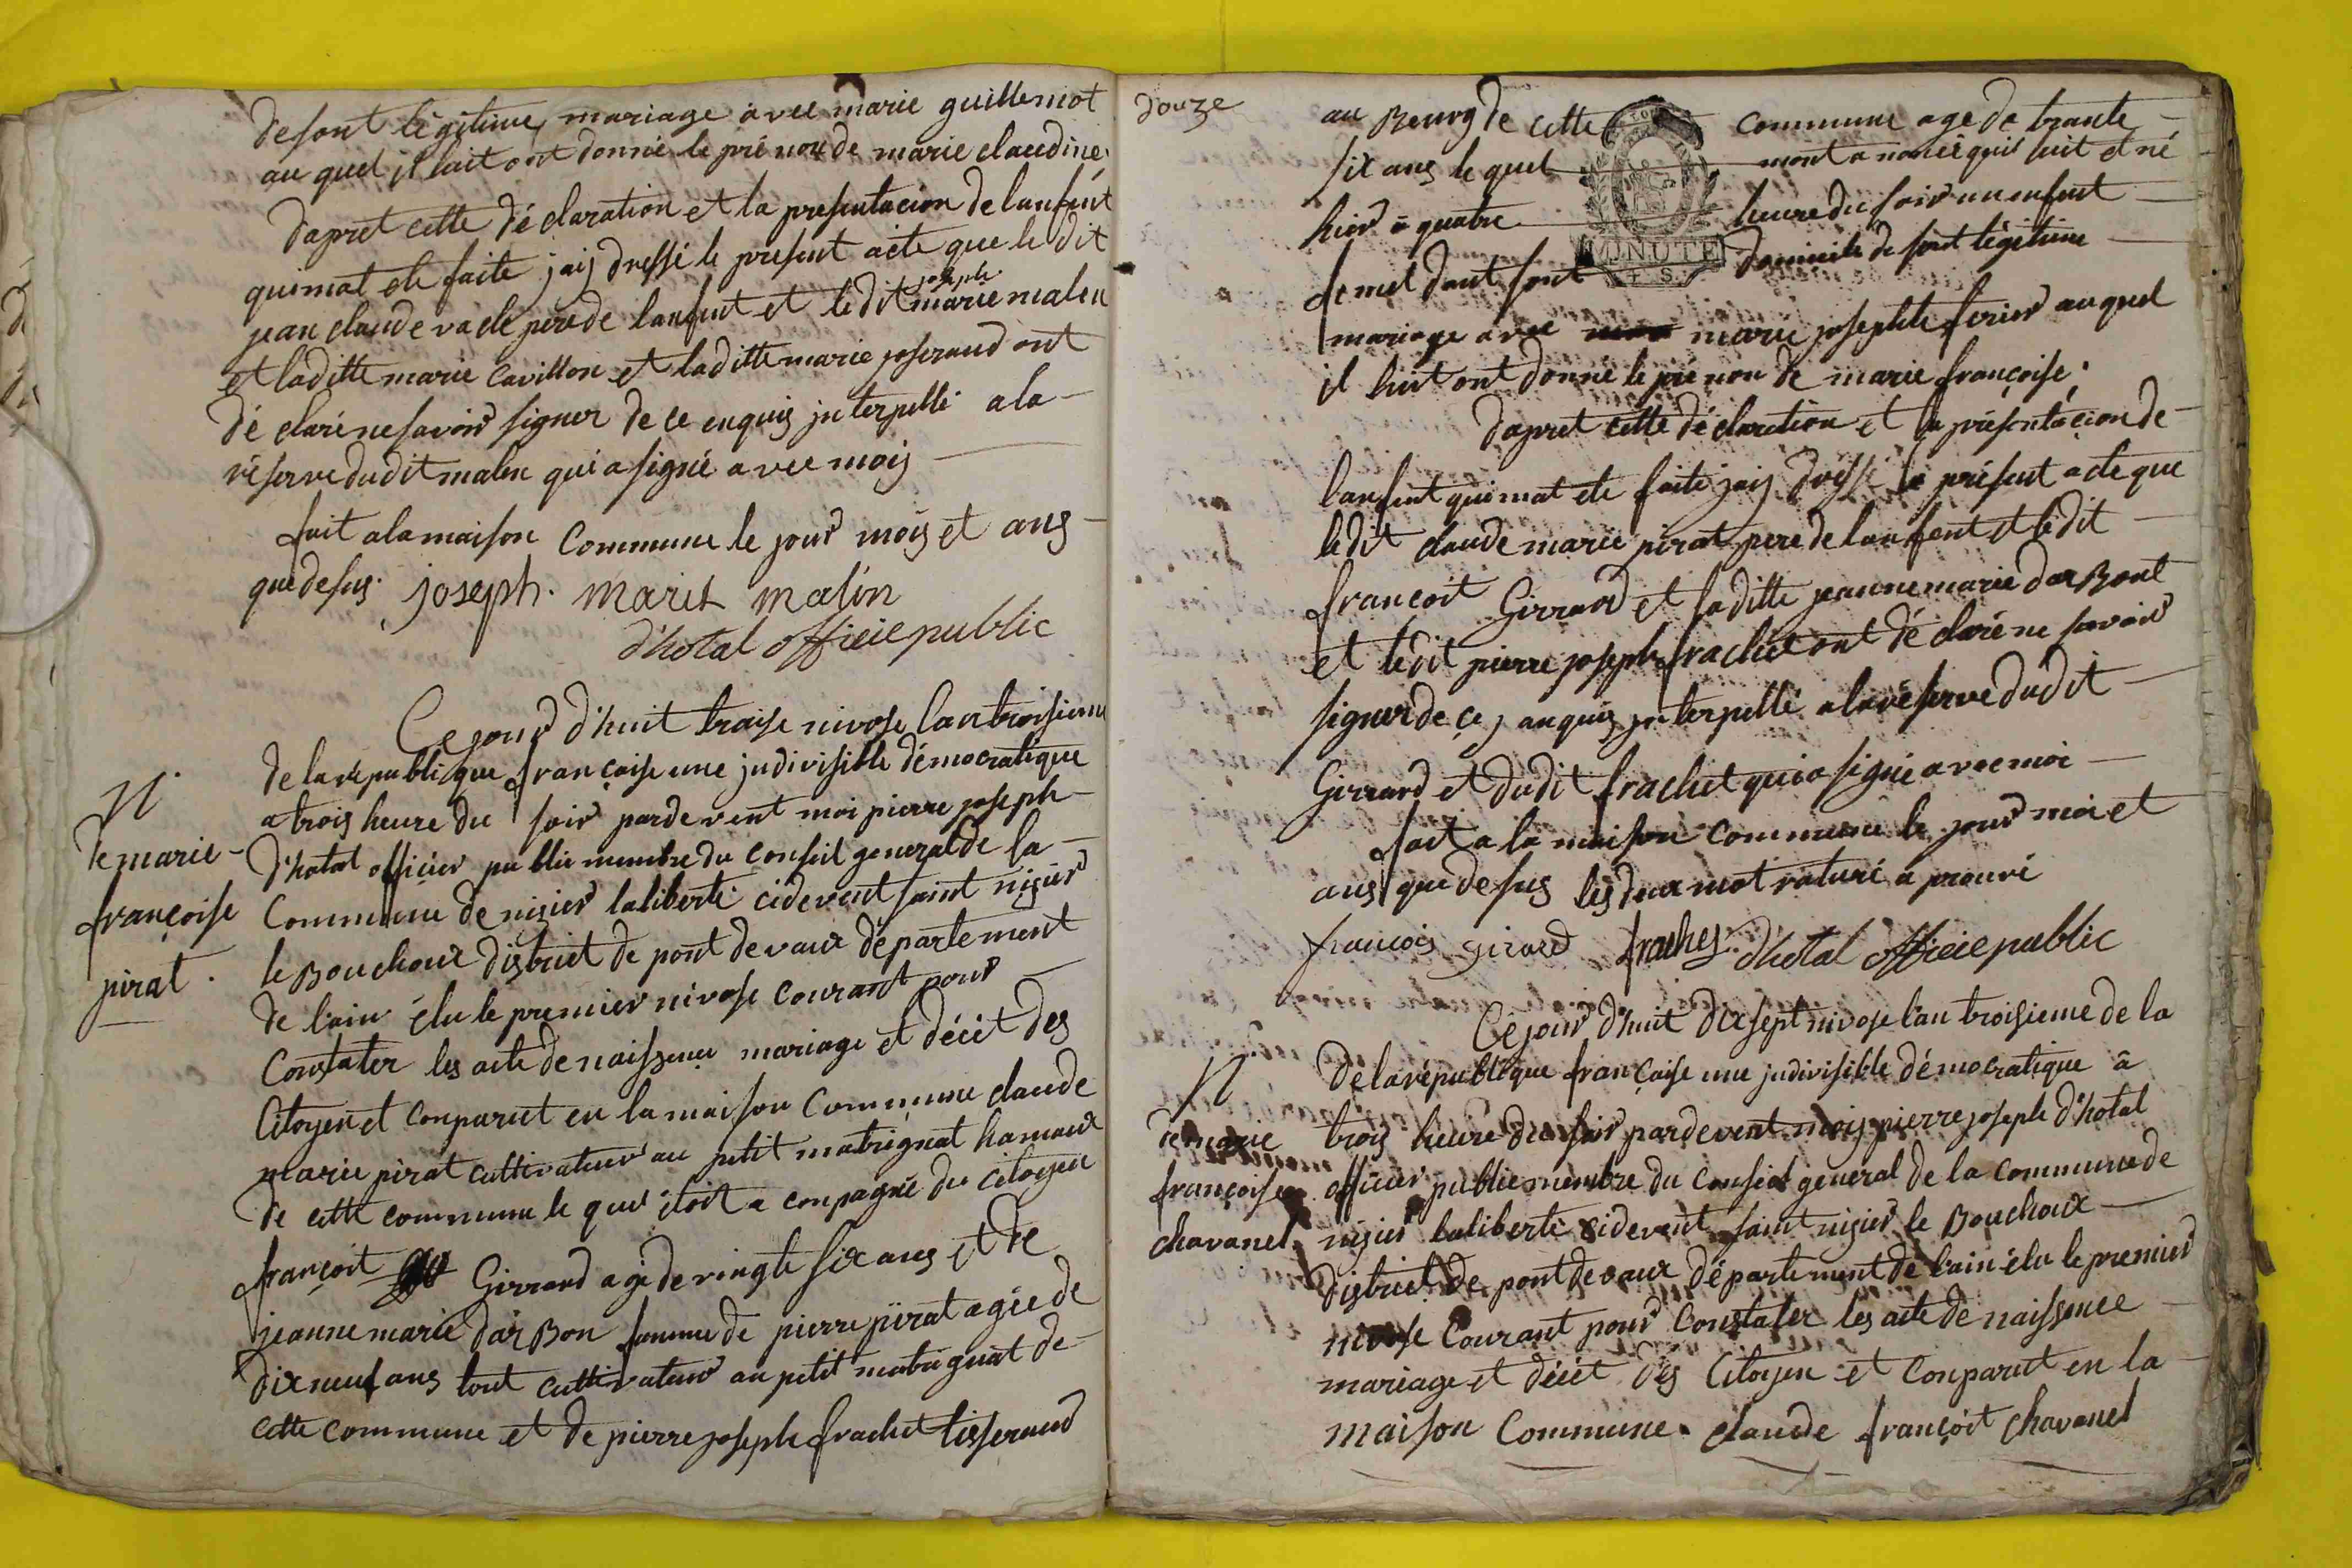 de sont légitime mariage avec marie guillemot
au quel il lait ont donné le pré nom de marie claudine.
dapret cette dé claration et la presentacion de lanfent
qui mat ete faite jaij dressé le present acte que le dit
joseph
jean claude vacle pere de lanfent et le dit marie malin
et laditte marie Cavillon et laditte marie joseraud ont
dé claré ne savoir signer de ce enquis jnterpellé a la
réserve dudit malin qui a signé avec moij
fait a la maison Commune le jour mois et ans
que desus. joseph. marit malin
d'hotal officié public
Ce jour d'huit traise nivose lan troisieme
de la république française une jndivisible démocratique
a trois heure du soir par devent moi pierre joseph
d'hotal officier public membre du Conseil general de la
Commune de nisier laliberté cidevent saint nisier
le Bouchoux district de pont devaux département
de l'ain élu le premier nivose Courant pour
Constater les acte de naissence mariage et décét des
Citoyen et Conparut en la maison Commune claude
marie pirat cultivateur au petit matrignat hamaux
de cette commune le quel étoit a conpagné du citoyen
françoit Girrard agé de vingte six ans et de
jeanne marie dar Bon famme de pierre pirat agée de
dix neuf ans tout cultivateur au petit matrignat de
cette commune et de pierre joseph frachet tisserand
N.
de marie
françoise
pirat.
douze
au Bourg de cette commune age de trante
six ans le quel mont a noncé quil luit et né
hier a quatre heure du soir un enfent
MINUTE
femel dant sont domicile de sont légitime
mariage avec marie josephte ferier au quel
il luit ont donné le pré nom de marie françoise.
dapret cette dé claration et la présentacion de
lanfent qui mat ete faite jaij dréssé le présent acte que
le dit claude marie pirat pere de lanfent et le dit
françoit Girrard et laditte jeanne marie dar Bont
et le dit pierre joseph frachet ont dé claré ne savoir
signer de ce, anquis jnterpellé a la réserve dudit
Girrard et dudit frachet qui a signé avec moi
fait a la maison commune le jour moi et
ans que desus les deux mot raturé a prouvé
francois girard frachet d'hotal officié public
Ce jour d'huit dix sept nivose l'an troisieme de la
de la république française une jndivisible démocratique à
trois heure du soir par devent moij pierre joseph d'hotal
officier public membre du Conseil général de la commune de
nisier laliberté cidevent saint nisier le Bouchoux
district de pont de vaux département de l'ain élu le premier
nivose Courant pour Constater les acte de naissence
mariage et décét des Citoyen et Conparut en la
maison Commune claude françoit chavanel
N.
de marie
françoise
chavanel